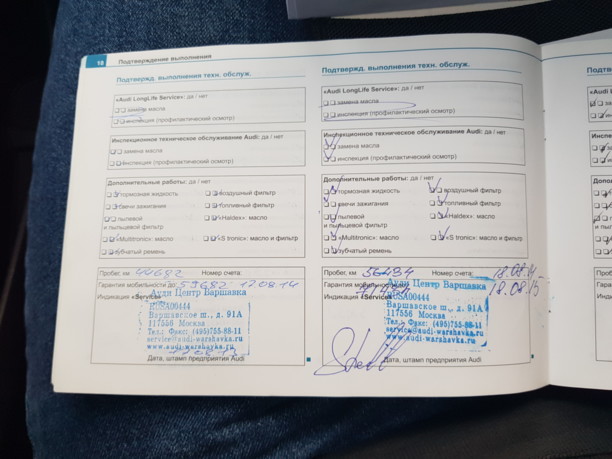 18 Подтверждение выполнения
Подтвержд. выполнения техн. обслуж.
«Audi LongLife Service»: да / нет
замена масла
инспекция (профилактический осмотр)
Инспекционное техническое обслуживание Audi: да / нет
замена масла
инспекция (профилактический осмотр)
Дополнительные работы: да / нет
тормозная жидкость воздушный фильтр
свечи зажигания топливный фильтр
пылевой «Haldex»: масло
и пыльцевой фильтр
«Multitronic»: масло «S tronic»: масло и фильтр
зубчатый ремень
Пробег, км 44682 Номер счета:
Гарантия мобильности до: 59682 17.08.14
Индикация «Service»
Ауди Центр Варшавка
RUSA00444
Варшавское ш., д. 91А
117556 Москва
Тел.: Факс: (495)755-88-11
service@audi-warshavka.ru
www.audi-warshavka.ru
Дата, штамп предприятия Audi
Подтвержд. выполнения техн. обслуж.
«Audi LongLife Service»: да / нет
замена масла
инспекция (профилактический осмотр)
Инспекционное техническое обслуживание Audi: да / нет
замена масла
инспекция (профилактический осмотр)
Дополнительные работы: да / нет
тормозная жидкость воздушный фильтр
свечи зажигания топливный фильтр
пылевой «Haldex»: масло
и пыльцевой фильтр
«Multitronic»: масло «S tronic»: масло и фильтр
зубчатый ремень
Пробег, км Номер счета: 18.08.
Гарантия мобильности 18.08.15
Индикация «Service»
Ауди Центр Варшавка
RUSA00444
Варшавское ш., д. 91А
117556 Москва
Тел.: Факс: (495)755-88-11
service@audi-warshavka.ru
www.audi-warshavka.ru
Дата, штамп предприятия Audi